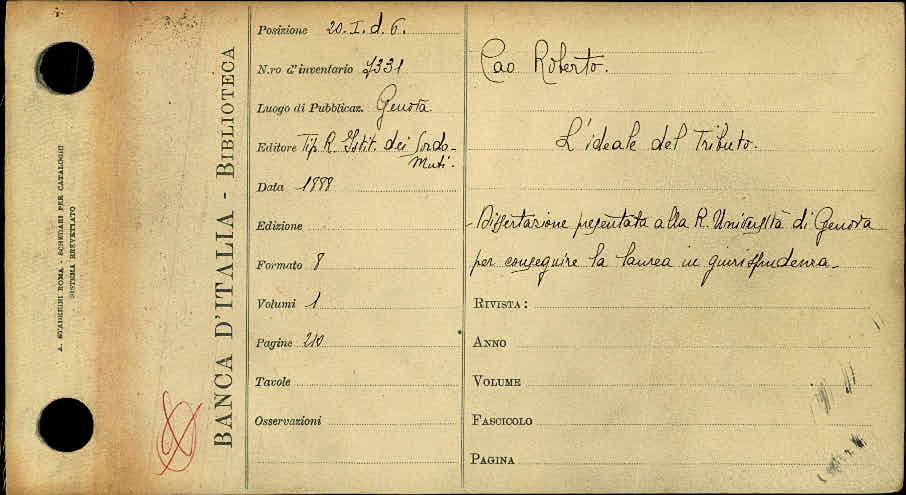 A. STADERINI ROMA - SCHEDARI PER CATALOGHI
SISTEMA BREVETTATO
BANCA D'ITALIA - BIBLIOTECA
Posizione 20. I. d. 6.
N.ro d'inventario 7331
Luogo di Pubblicaz. Genova
Editore Tip. R. Istit. dei Sordo-
Muti.
Data 1888
Edizione
Formato 8
Volumi 1
Pagine 210
Tavole
Osservazioni
Cao Roberto.
L'ideale del Tributo.
- Dissertazione presentata alla R. Università di Genova
per conseguire la laurea in giurisprudenza -
RIVISTA:
ANNO
VOLUME
FASCICOLO
PAGINA